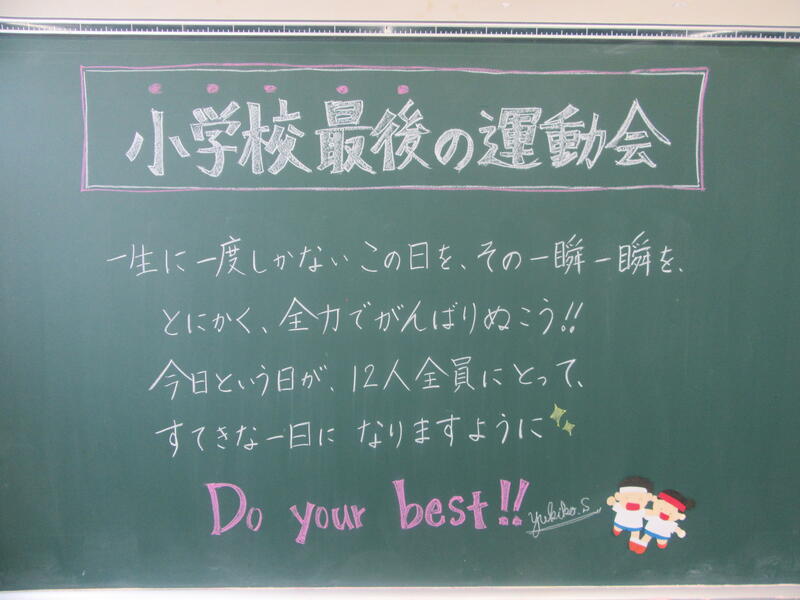 小学校最後の運動会
一生に一度しかないこの日を、その一瞬一瞬を、
とにかく、全力でがんばりぬこう!!
今日という日が、12人全員にとって、
すてきな一日になりますように
Do your best!!
yukiko.S